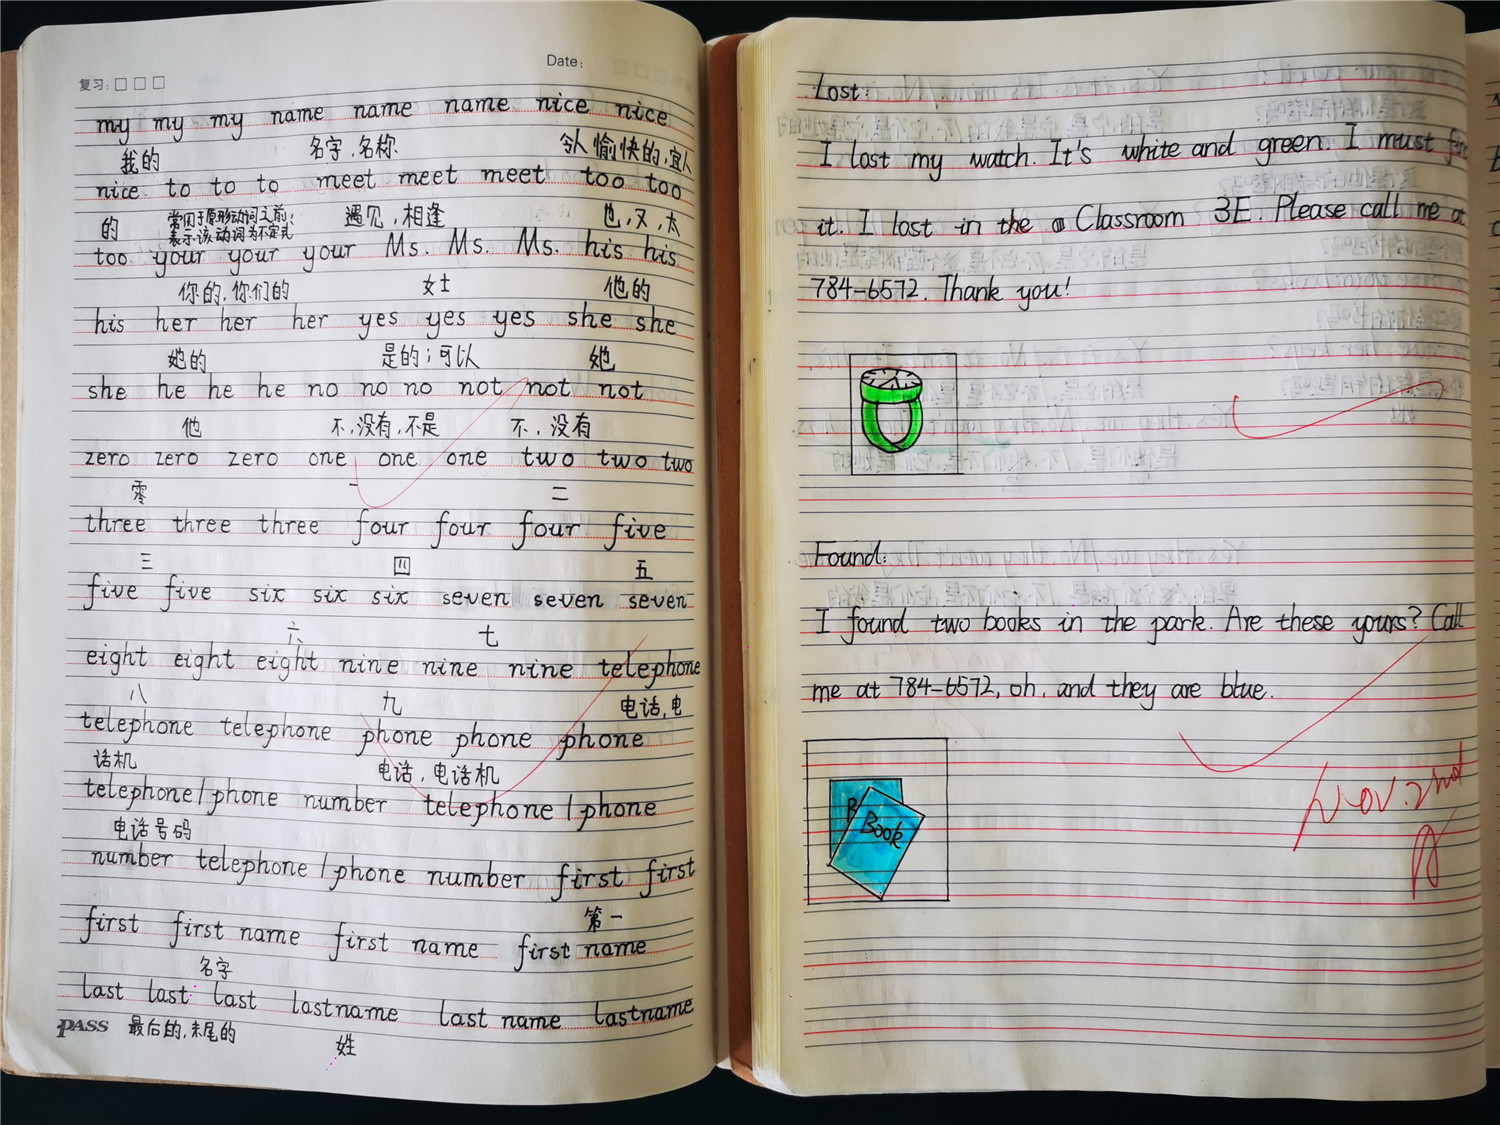 复习:
Date:
my my my name name name nice nice
我的 名字,名称 令人愉快的,宜人
nice to to to meet meet meet too too
的 常用于原形动词之前,表示该动词为不定式 遇见,相逢 也,又,太
too your your your Ms. Ms. Ms. his his
你的,你们的 女士 他的
his her her her yes yes yes she she
她的 是的;可以 她
she he he he no no no not not not
他 不,没有,不是 不,没有
zero zero zero one one one two two two
零 一 二
three three three four four four five
三 四 五
five five six six six seven seven seven
六 七
eight eight eight nine nine nine telephone
八 九 电话,电
telephone telephone phone phone phone
话机 电话,电话机
telephone/phone number telephone/phone
电话号码
number telephone/phone number first first
第一
first first name first name first name
名字
last last last lastname last name lastname
PASS 最后的,末尾的 姓
Lost:
I lost my watch. It's white and green. I must
it. I lost in the a Classroom 3E. Please call me at
784-6572. Thank you!
Found:
I found two books in the park. Are these yours? Call
me at 784-6572, oh, and they are blue.
B
Book
Nov. 2nd
A